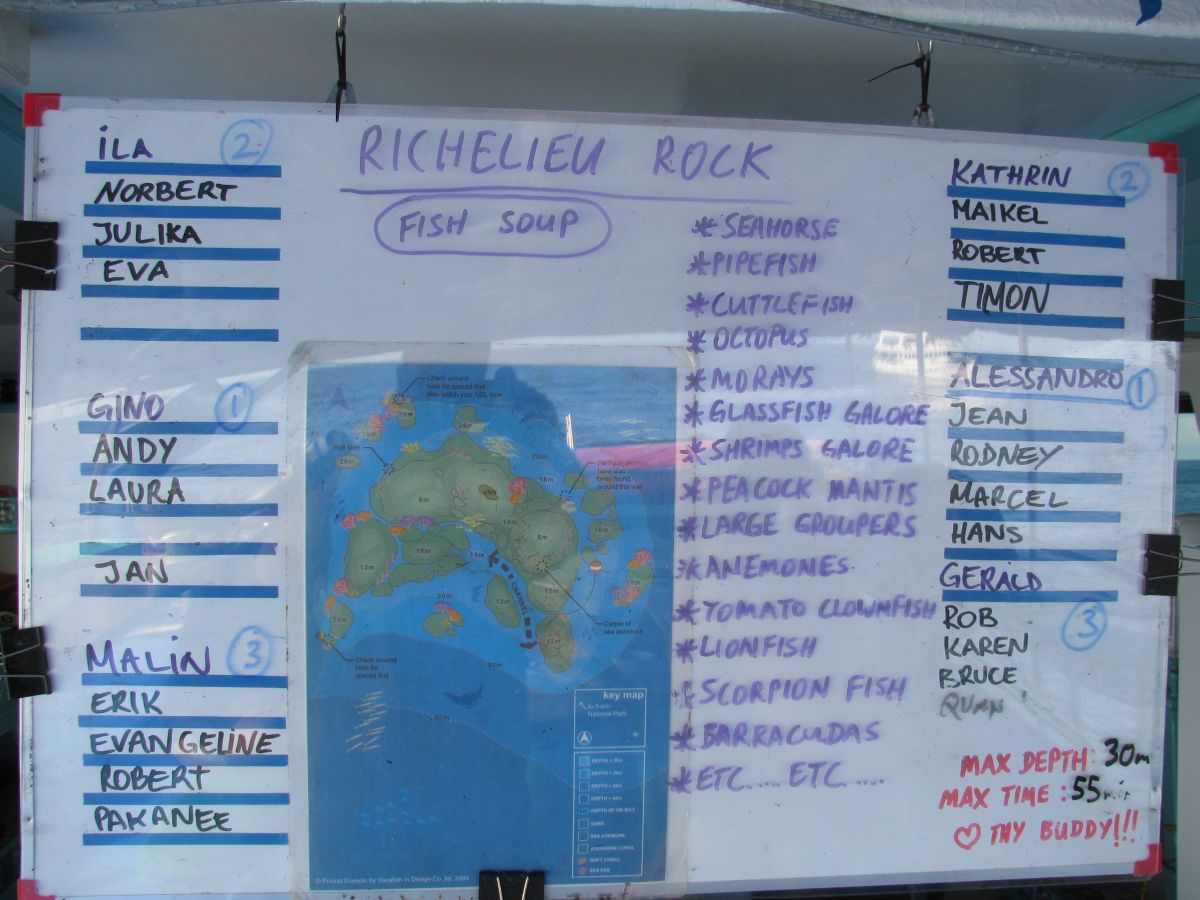 RICHELIEU ROCK
FISH SOUP
ILA 2
NORBERT
JULIKA
EVA
GINO 1
ANDY
LAURA
JAN
MALIN 3
ERIK
EVANGELINE
ROBERT
PAKANEE
* SEAHORSE
* PIPEFISH
* CUTTLEFISH
* OCTOPUS
* MORAYS
* GLASSFISH GALORE
* SHRIMPS GALORE
* PEACOCK MANTIS
* LARGE GROUPERS
* ANEMONES
* TOMATO CLOWNFISH
* LIONFISH
* SCORPION FISH
* BARRACUDAS
* ETC.... ETC....
KATHRIN 2
MAIKEL
ROBERT
TIMON
ALESSANDRO 1
JEAN
RODNEY
MARCEL
HANS
GERALD
ROB 3
KAREN
BRUCE
MAX DEPTH: 30m
MAX TIME: 55 min
♡ THY BUDDY!!!
Check around
here for special find
also watch your NDL time
Harlequin shrimps
have also
been found
around this wall
8m
5m
12m
16m
14m
18m
12m
CHANNEL
Carpet of
sea anemone
Check around
here for
special find
30m
40m
key map
to Surin
National Park
DEPTH OF OBJECT
SAND
SEA ANEMONE
STAGHORN CORAL
SOFT CORAL
SEA FAN
© Pocket Divesite by Vacation in Design Co.,ltd. 2004